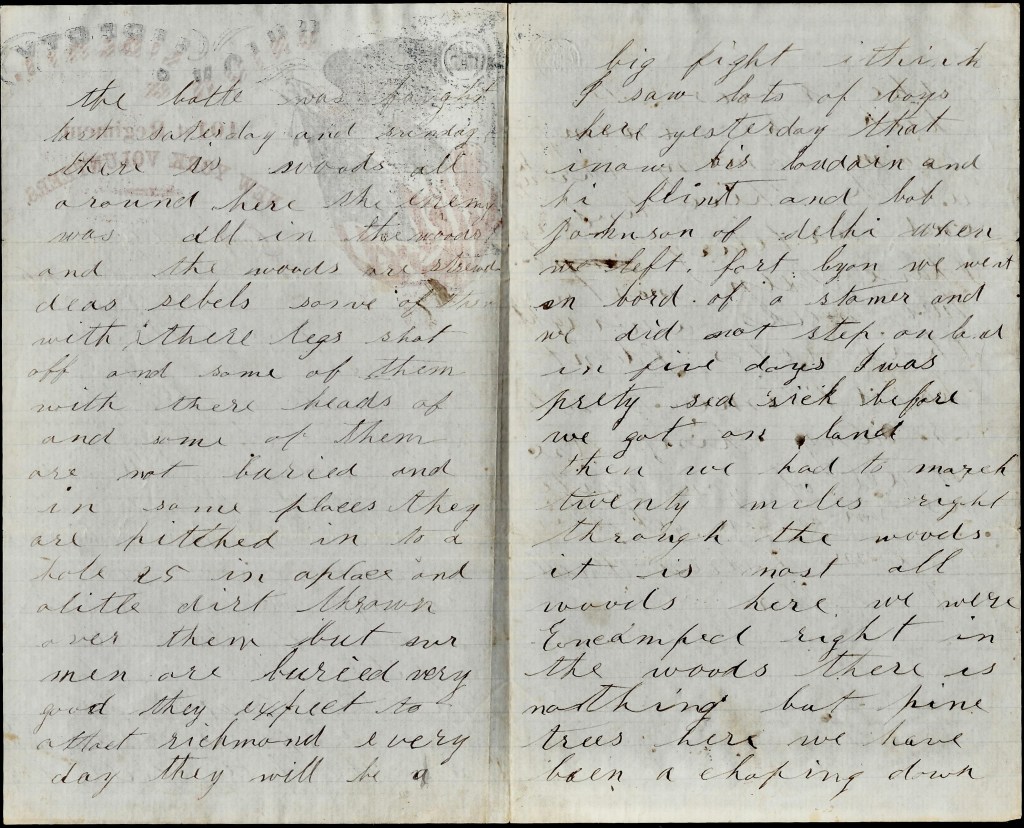 the batle was fought
last satesday and sunday
there is woods all
around here the enemy
was all in the woods
and the woods are strewd
deas rebels some of them
with there legs shot
off and some of them
with there heads of
and some of them
are not buried and
in some places they
are pitched in to a
hole 25 in aplace and
alitle dirt thrown
over them but our
men are buried very
good they expect to
attact richmond every
day they will be a
big fight ithink
I saw lots of boys
here yesterday that
inow and
hi flint and bob
Johnson of delhi when
we left. fort lyon we went
on bord of a stamer and
we did not step on land
in five days I was
prety sea sick before
we got on land
then we had to march
twenty miles right
through the woods
it is most all
woods here we were
Encamped right in
the woods there is
nothing but pine
trees here we have
been a choping down